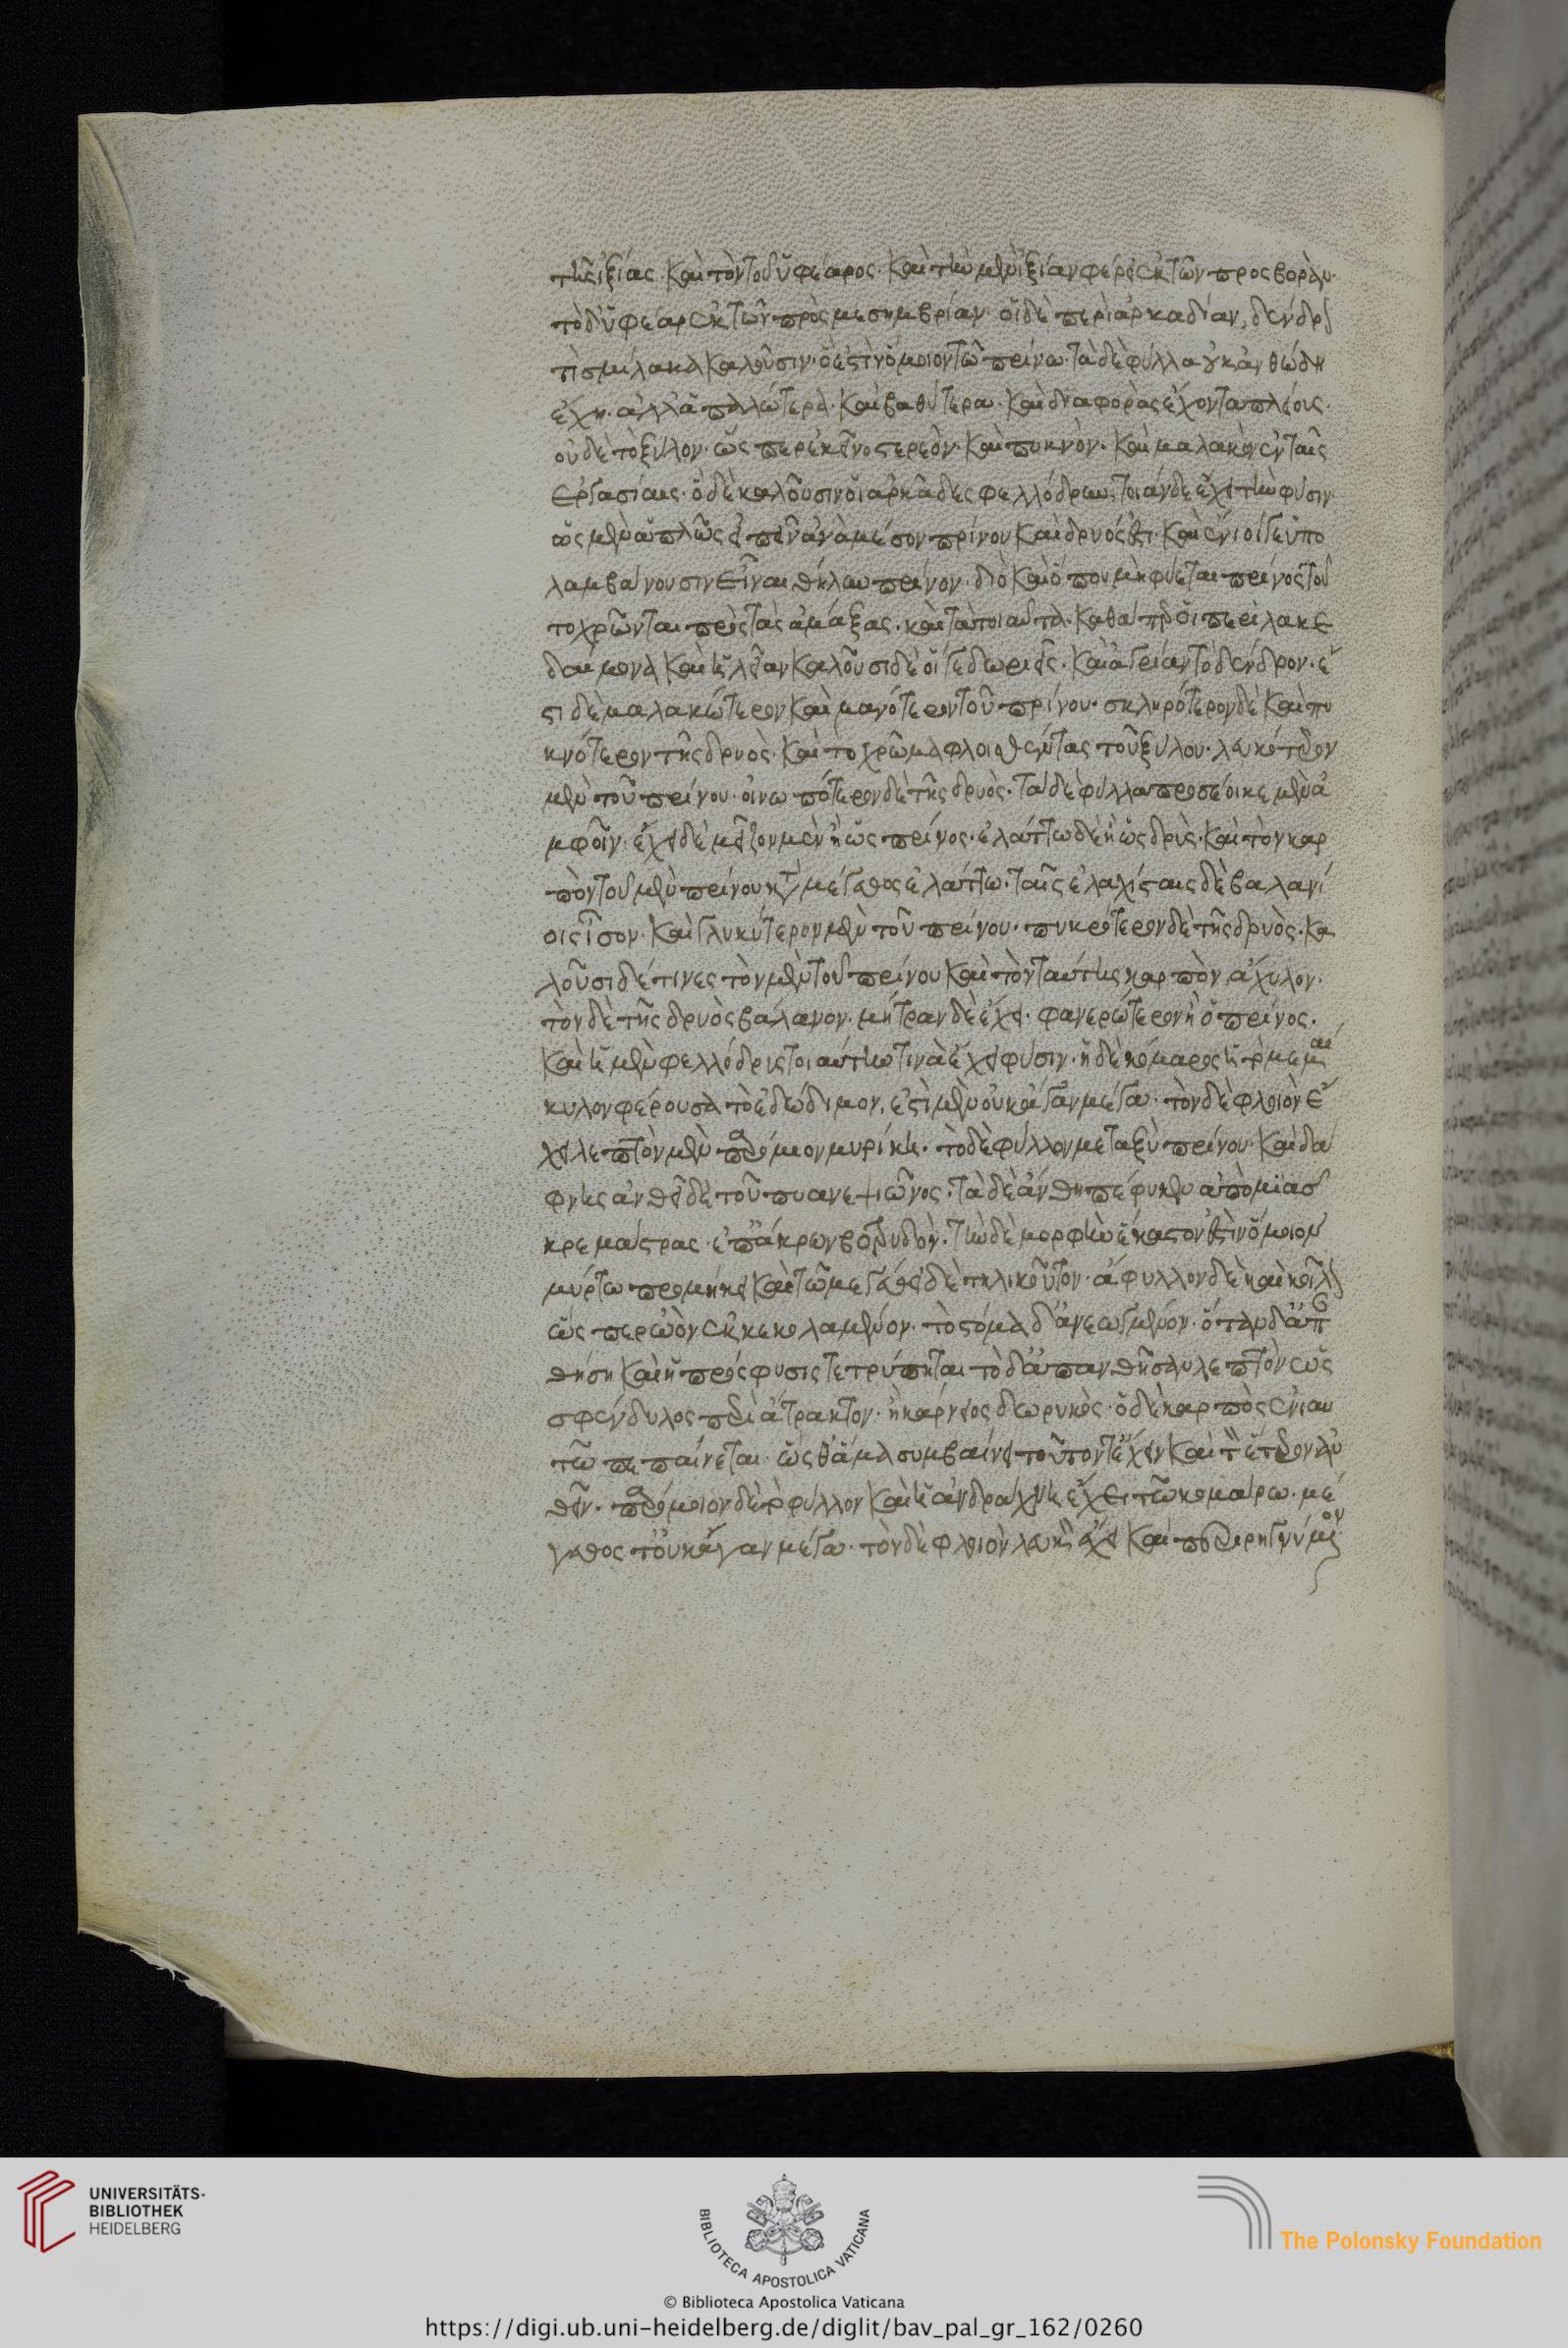 τῆς ἰξίας· καὶ τὸν τοῦ ὑφέαρος· καὶ τὴν μὲν ἰξίαν φέρει ἐκ τῶν πρὸς βορὰν·
τὸ δ' ὑφέαρ ἐκ τῶν πρὸς μεσημβρίαν· οἱ δὲ περὶ ἀρκαδίαν, δένδρ
τὶ σμίλακα καλοῦσιν· ὅ ἐστιν ὅμοιον τῶ πρίνω· τὰ δὲ φύλλα οὐκ ἀκανθώδη
ἔχη· ἀλλ' ἁπαλώτερα· καὶ βαθύτερα· καὶ διαφορὰς ἔχοντα πλείους·
οὐδὲ τὸ ξύλον· ὥσπερ ἐκεῖνο στερεὸν· καὶ πυκνὸν· καὶ μαλακὸν ἐν ταῖς
ἐργασίαις· ὃ δὲ καλοῦσιν οἱ ἀρκάδες φελλόδρυν, τοιάνδε ἔχει τὴν φύσιν
ὡς μὲν ἁπλῶς εἰπεῖν ἀνὰ μέσον πρίνου καὶ δρυός ἐστι· καὶ ἔνιοί γε ὑπο
λαμβάνουσιν εἶναι θῆλυν πρίνον· διὸ καὶ ὅπου μὴ φύεται πρίνος τού
τω χρῶνται πρὸς τὰς ἁμάξας· καὶ τὰ τοιαῦτα· καθάπερ οἱ περὶ λακε
δαίμονα καὶ ἠλείαν καλοῦσι δὲ οἵ γε δωριεῖς· καὶ ἀγρίαν τὸ δένδρον· ἔ
στι δὲ μαλακώτερον καὶ μανότερον τοῦ πρίνου· σκληρότερον δὲ καὶ πυ
κνότερον τῆς δρυὸς· καὶ τὸ χρῶμα φλοισθέντος τοῦ ξύλου· λευκότερον
μὲν τοῦ πρίνου· οἰνωπότερον δὲ τῆς δρυὸς· τὰ δὲ φύλλα προσέοικε μὲν ἀ
μφοῖν· ἔχει δὲ μείζον μὲν ἢ ὡς πρίνος· ἐλάττω δὲ ἢ ὡς δρῦς· καὶ τὸν καρ
πὸν τοῦ μὲν πρίνου κατὰ μέγεθος ἐλάττω· ταῖς ἐλαχίσταις δὲ βαλανί
οις ἴσον· καὶ γλυκύτερον μὲν τοῦ πρίνου· πικρότερον δὲ τῆς δρυὸς· κα
λοῦσι δέ τινες τὸν μὲν τοῦ πρίνου καὶ τὸν ταύτης καρπὸν ἄκυλον·
τὸν δὲ τῆς δρυὸς βάλανον· μήτραν δὲ ἔχει· φανερώτερον ἢ ὁ πρίνος·
καὶ ἡ μὲν φελλόδρυς τοιαύτην τινὰ ἔχει φύσιν· ἡ δὲ κόμαρος ἡ τὸ μεμαι
κυλον φέρουσα τὸ ἐδώδιμον, ἐστὶ μὲν οὐκ ἄγαν μέγα· τὸν δὲ φλοιὸν ἔ
χει λεπτὸν μὲν παρόμοιον μυρίκη· τὸ δὲ φύλλον μεταξὺ πρίνου καὶ δά
φνης ἀνθεῖ δὲ τοῦ πυανεψιῶνος· τὰ δὲ ἄνθη πέφυκεν ἀπὸ μιᾶς
κρεμάστρας ἐπ' ἄκρων βοτρυδόν· τὴν δὲ μορφὴν ἕκαστον ἐστὶν ὅμοιον
μύρτω προμήκει καὶ τῶ μεγέθει δὲ τηλικοῦτον· ἄφυλλον δὲ καὶ κοῖλον
ὥσπερ ὠὸν ἐκκεκολαμμένον· τὸ στόμα δ' ἀνεωγμένον· ὅταν δ' ἀπ
θήση καὶ ἡ πρόσφυσις τετρύπηται τὸ δ' ἀπανθῆσαν λεπτὸν ὡς
σφένδυλος περὶ ἄτρακτον· ἢ κάρνειος δωρικὸς· ὁ δὲ καρπὸς ἐνιαυ
τῶ πεπαίνεται· ὥσθ' ἅμα συμβαίνει τοῦτόν τ' ἔχειν καὶ τὸν ἕτερον ἀν
θεῖν· παρόμοιον δὲ τὸ φύλλον καὶ ἡ ἀνδράχνη ἔχει τῶ κομάρω· μέ
γεθος τ' οὐκ ἄγαν μέγα· τὸν δὲ φλοιὸν λεῖον ἔχει καὶ περιρηγνύμενον
© Biblioteca Apostolica Vaticana
UNIVERSITÄTS-
BIBLIOTHEK
HEIDELBERG
BIBLIOTECA APOSTOLICA VATICANA
The Polonsky Foundation
https://digi.ub.uni-heidelberg.de/diglit/bav_pal_gr_162/0260